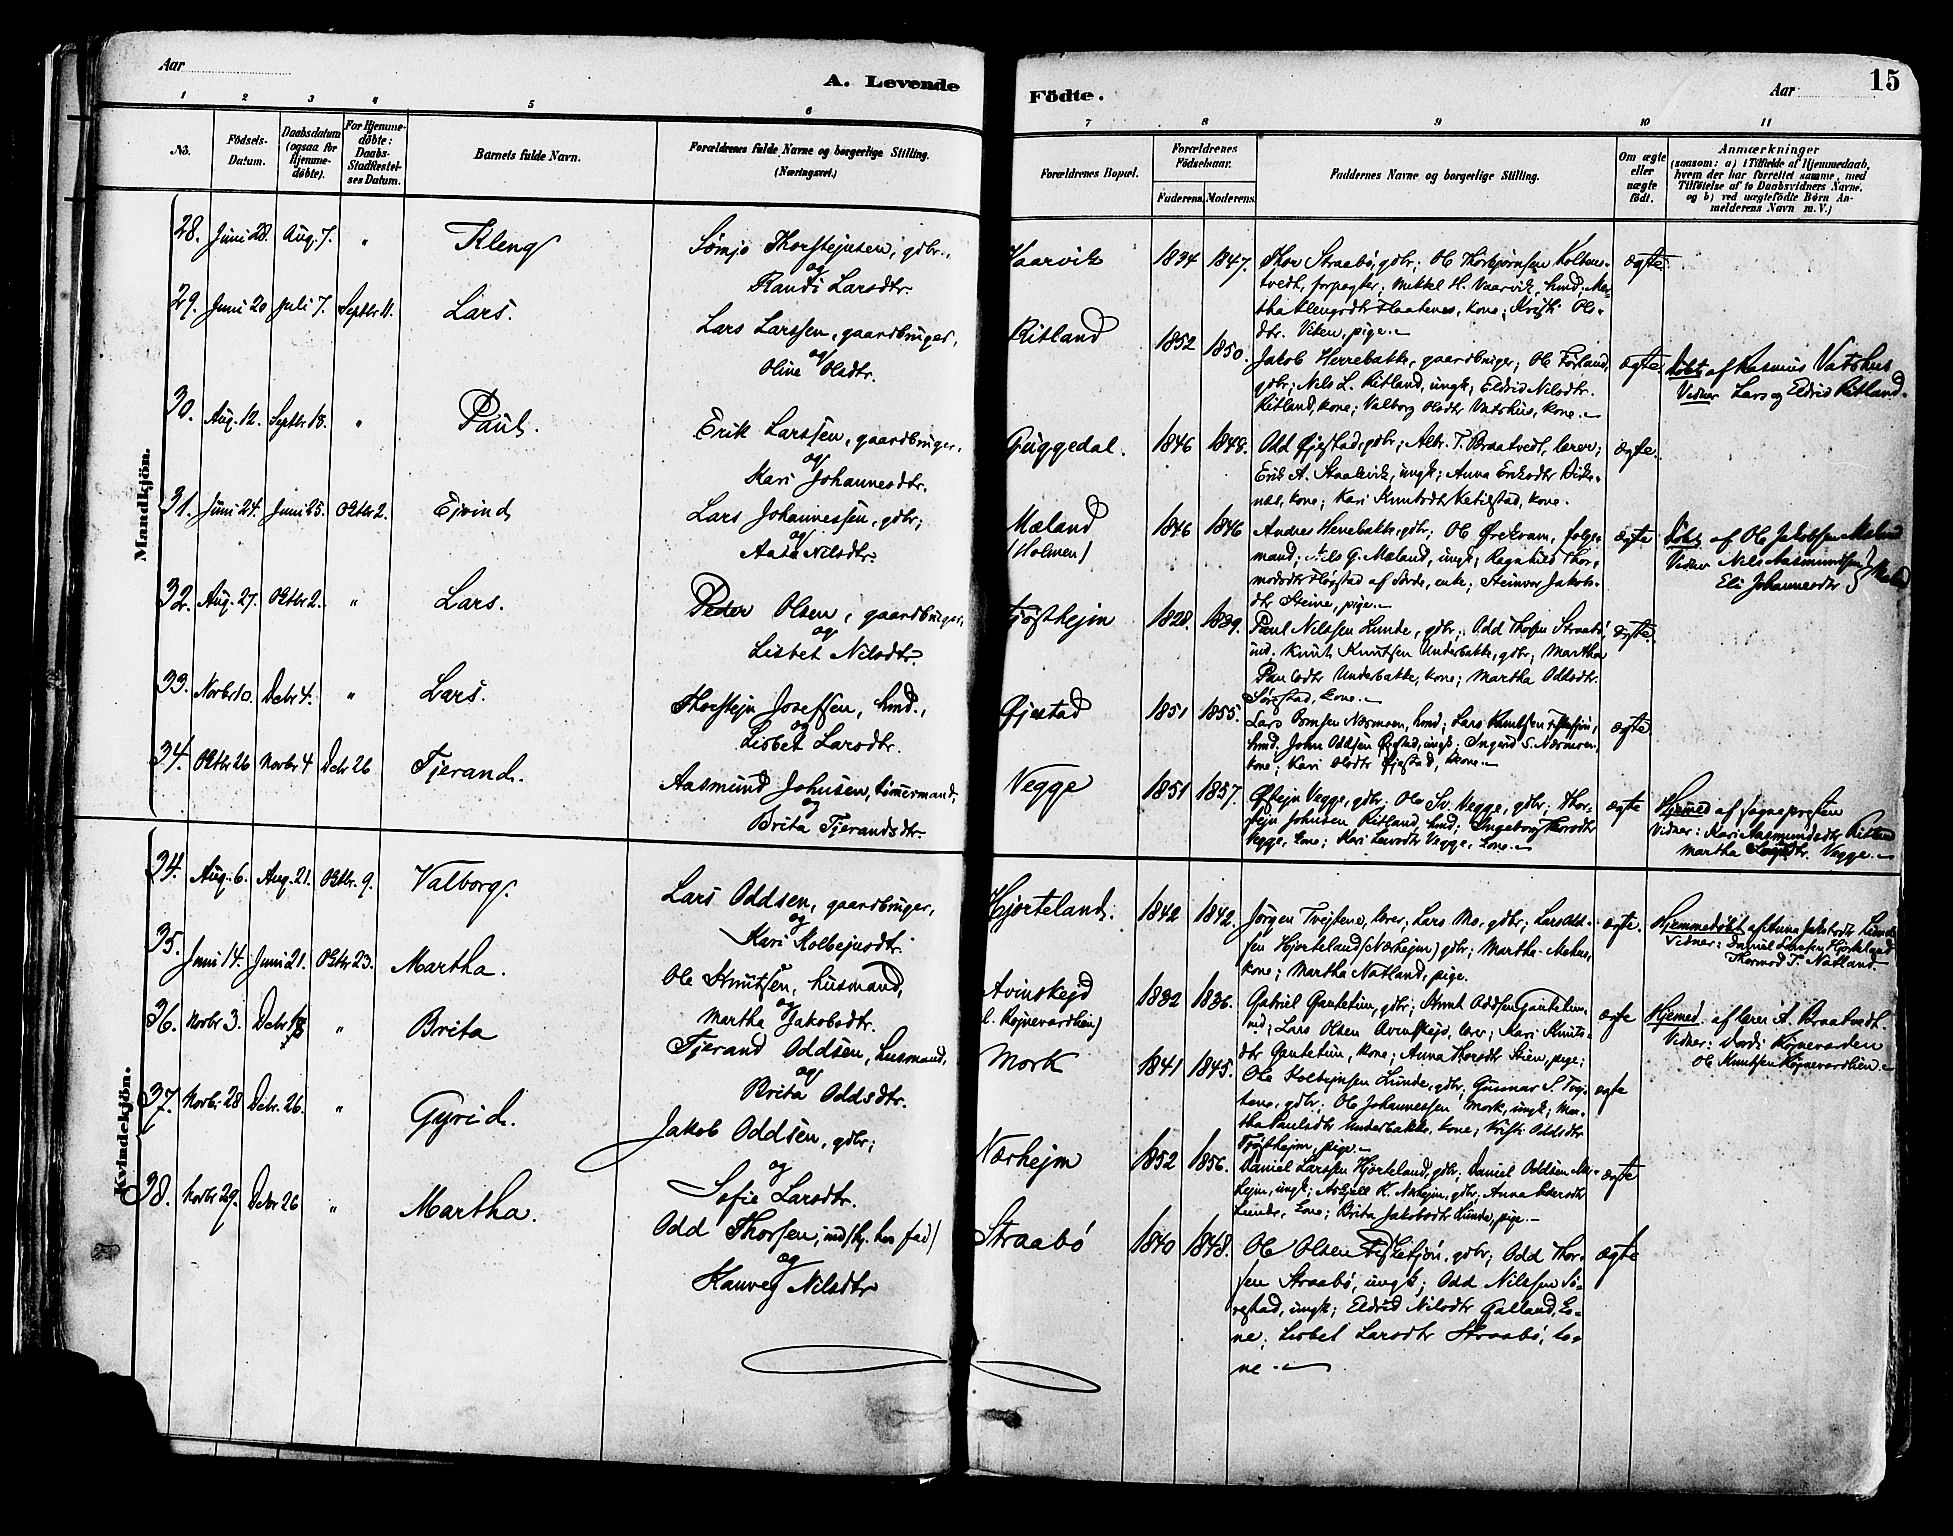 Aar
A. Levende
Födte.
Aar
15
1 2 3 4 5 6 7 8 9 10 11
No.
Födsels-Datum.
Daabsdatum (ogsaa for Hjemme-döbte).
For Hjemme-döbte: Daabs-Stadfæstel-ses Datum.
Barnets fulde Navn.
Forældrenes fulde Navne og borgerlige Stilling. (Næringsvei.)
Forældrenes Bopæl.
Forældrenes Födselsaar.
Faderens. Moderens.
Faddernes Navne og borgerlige Stilling.
Om ægte eller uægte födt.
Anmærkninger
(saasom: a) i Tilfælde af Hjemmedaab,
hvem der har forrettet samme, med
Tilföielse af to Daabsvidners Navne.
og b) ved uægtefödte Börn An-
melderens Navn m. V.)
Mandkjön.
28. Juni 28. Aug. 7. " Kleng Sømje Thorstejnsen, gdbr.,
og
Randi Larsdtr.
Vaarvik 1834 1847. Thor Straabø, gdbr; Ol. Thorbjørnsen Kolben-
tvedt, forpagter; Mikkel H. Vaarvik, hmd; Mar-
tha Klengsdtr Flaatenes, kone; Kristi Ols-
dtr. Viken, pige.
ægte
29. Juni 20 Juli 7. Septbr 11. Lars. Lars Larssen, gaardbruger,
og
Oline Olsdtr.
Ritland 1852 1850. Jakob Herrebakke, gaardbruger; Ol. Førland,
gdbr; Nils L. Ritland, ungk; Eldrid Nilsdtr.
Ritland, kone; Valborg Olsdtr Vatshus, kone.
ægte Døbt af Rasmus Vatshus
Vidner Lars og Eldrid Ritland.
30. Aug. 12. Septbr 18. " Paul. Erik Larssen, gaardbruger,
og
Kari Johannesdtr.
Guggedal. 1846 1848. Odd Øjestad, gdbr; Albr. T. Braatvedt, lærer;
Erik A. Staalevik, ungk; Anna Eriksdtr
kone; Kari Knutsdtr kone.
ægte.
31. Juni 24. Juni 25. Oktbr 2. Ejvind Lars Johannessen, gdbr;
og
Aasa Nilsdtr.
Mæland
(Holmen)
1846 1846 Andres Herrebakke, gdbr; Ol. Ørekvam, følge-
mand; Nils G. Mæland, ungk; Ragnhild Thor-
modsdtr Høgstad af Søvde, enke. Steinvor Jakobs-
dtr Steine, pige.
ægte Døbt af Ole Jakobsen Mæland
Vidner Nils Aasmundsen
Eli Johannesdtr } Mæland
32. Aug. 27. Oktbr 2. " Lars. Peder Olsen, gaardbruger,
og
Lisbet Nilsdtr.
Tjøsthejm 1828. 1839. Paul Nilssen Lunde, gdbr; Odd Thorsen Straabø,
ind. Knut Knutsen Underbakke, gdbr; Martha
Paulsdtr Underbakke, kone; Martha Oddsdtr.
Sørestad, kone.
ægte
33. Novbr 10. Debr 4. " Lars. Thorstejn Josefsen, hmd.,
og
Lisbet Larsdtr.
Øjestad 1851 1855. Lars Nærmoen, hmd; Lars Knutsen
hmd; John Oddsen Ørstad, ungk; Ingerid S. Nærmoen,
kone; Kari Olsdtr Øjestad, kone.
ægte
34. Oktbr 26 Novbr 4 Debr 26 Tjerand. Aasmund Johnsen, tømmermand,
og
Brita Tjerandsdtr.
Vegge 1851 1857. Østejn Vegge, gdbr; Ole Sv. Vegge, gdbr; Thor-
stejn Johnsen Ritland, hmd; Ingeborg Thorsdtr
Vegge, kone; Kari Larsdtr Vegge, kone.
ægte Hjemed af sognepresten
Vidner: Kari Aasmundsdtr Ritland
Martha dtr. Vegge.
Kvindekjön.
34. Aug. 6. Aug. 21. Oktbr. 9. Valborg. Lars Oddsen, gaardbruger,
og
Kari Kolbejnsdtr.
Hjorteland. 1842 1842. Jørgen Tvejtene, lærer; Lars Mo, gdbr; Lars Odd-
sen Hjorteland (Nærhejm) gdbr; Martha
kone; Martha Natland, pige.
ægte. Hjemmedøbt af Anna Jakobsdtr Lunde
Vidner: Daniel Larssen Hjorteland
Thormod T. Natland.
35. Juni 14. Juni 21. Oktbr 23. Martha. Ole Knutsen, husmand,
og
Martha Jakobsdtr.
Avinskejd
(l. Røjnevardhen)
1832 1836. Gabriel Gautetun, gdbr; Knut Oddsen Gautetun,
ind; Lars Olsen Avinskejd, lærer; Kari Knuts-
dtr Gautetun, kone; Anna Thorsdtr Stien, pige;
ægte Hjemed. af lærer A. Braatvedt.
Vidner: Dordi Røjnevarden
Ol. Knutsen Røjnevardhen.
36. Novbr 3. Debr 18 " Brita Tjerand Oddsen, husmand,
og
Brita Oddsdtr.
Mork 1841 1845. Ole Kolbejnsen Lunde, gdbr; Gunnar S. Tvej-
tene, gdbr; Ol. Johannessen Mork, ungk; Mar-
tha Paulsdtr Underbakke, kone; Kristi Oddsdtr
Tjøsthejm, pige.
ægte
37. Novbr 28 Debr. 26. " Gyrid. Jakob Oddsen, gdbr;
og
Sofie Larsdtr.
Nærhejm 1852 1856. Daniel Larssen Hjorteland, gdbr; Daniel Oddsen Nær-
hejm, ungk; Askjell K. Nærhejm, gdbr; Anna Pedersdtr
Lunde, kone; Brita Jakobsdtr Lunde, pige.
ægte
38. Novbr 29. Debr 26 " Martha. Odd Thorsen, ind (hj. hos fad)
og
Ranveg Nilsdtr
Straabø 1840 1848. Ol. Olsen Fiskefjøn, gdbr; Odd Thor-
sen Straabø, ungk; Odd Nilssen Sø-
restad, ungk; Eldrid Nilsdtr Galland, ko-
ne; Lisbet Larsdtr Straabø, ko-
ne.
ægte